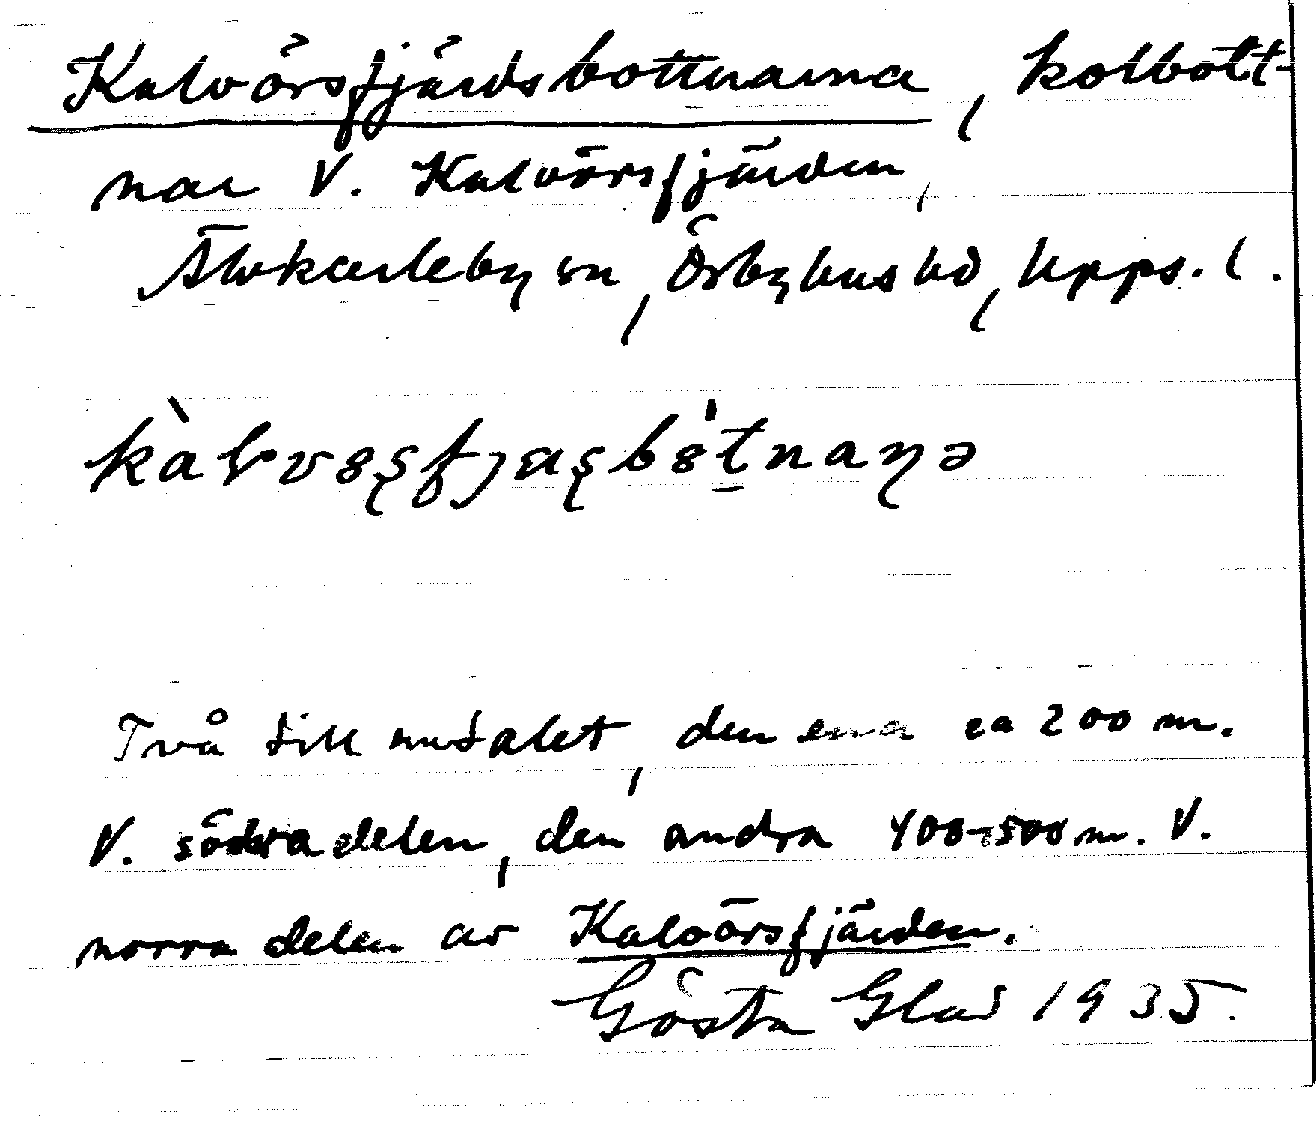 Kalvörsfjärdsbottnarna, kolbott-
nar V. Kalvörsfjärden,
Älvkarleby sn, Örbyhus hd, Upps. l.
Två till antalet, den ena ca 200 m.
V. södra delen, den andra 400-500 m. V.
norra delen av Kalvörsfjärden.
Gösta Glad 1935.